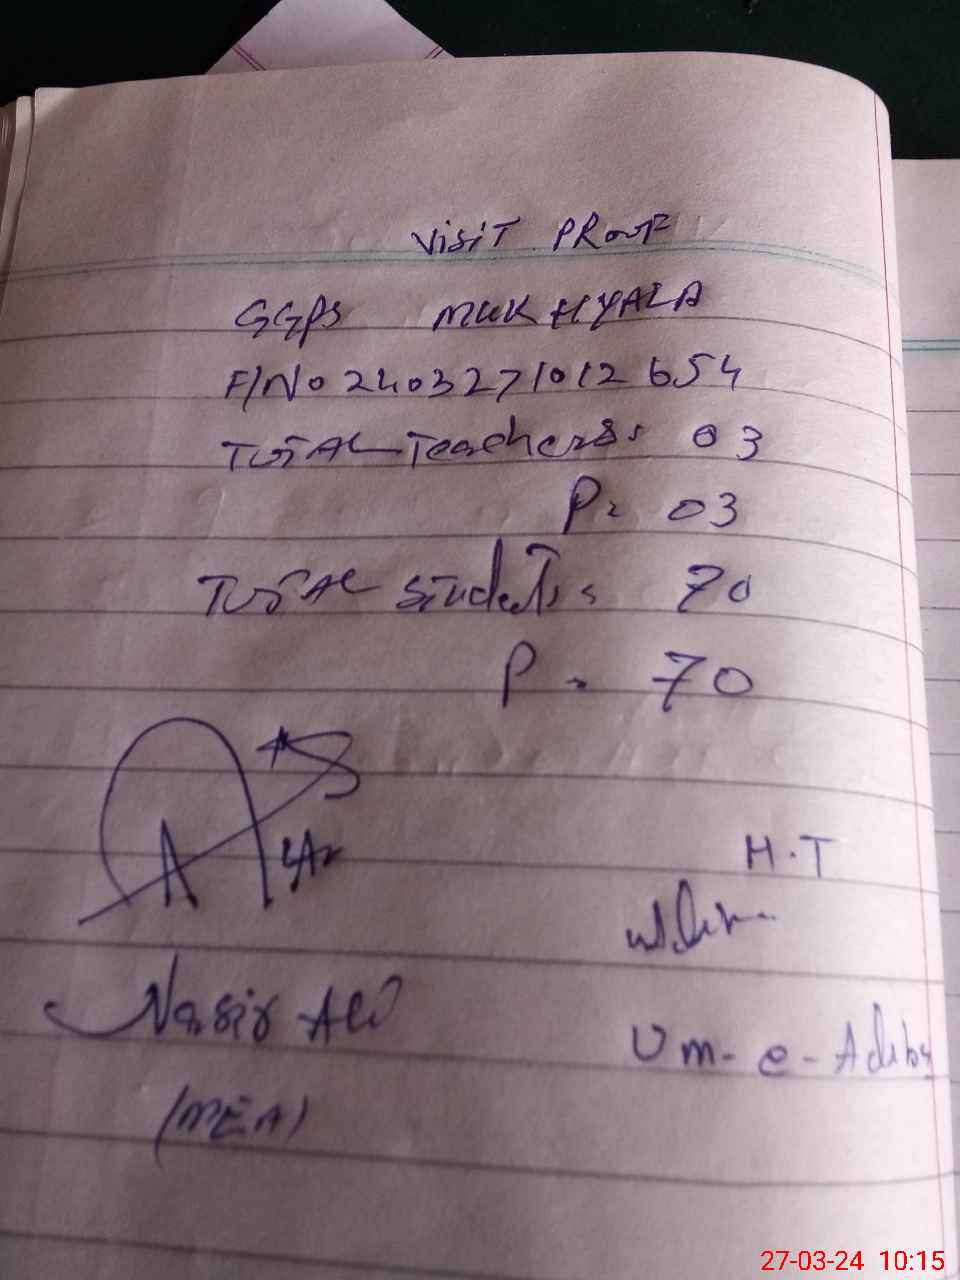 Visit PRoof
GGPS MUKHYALA
F/No 2403271012654
TOTAL Teachers= 03
P= 03
TOTAL Students= 70
P= 70
H.T
Nasir Ali
Um-e-Adiba
(MEA)
27-03-24 10:15